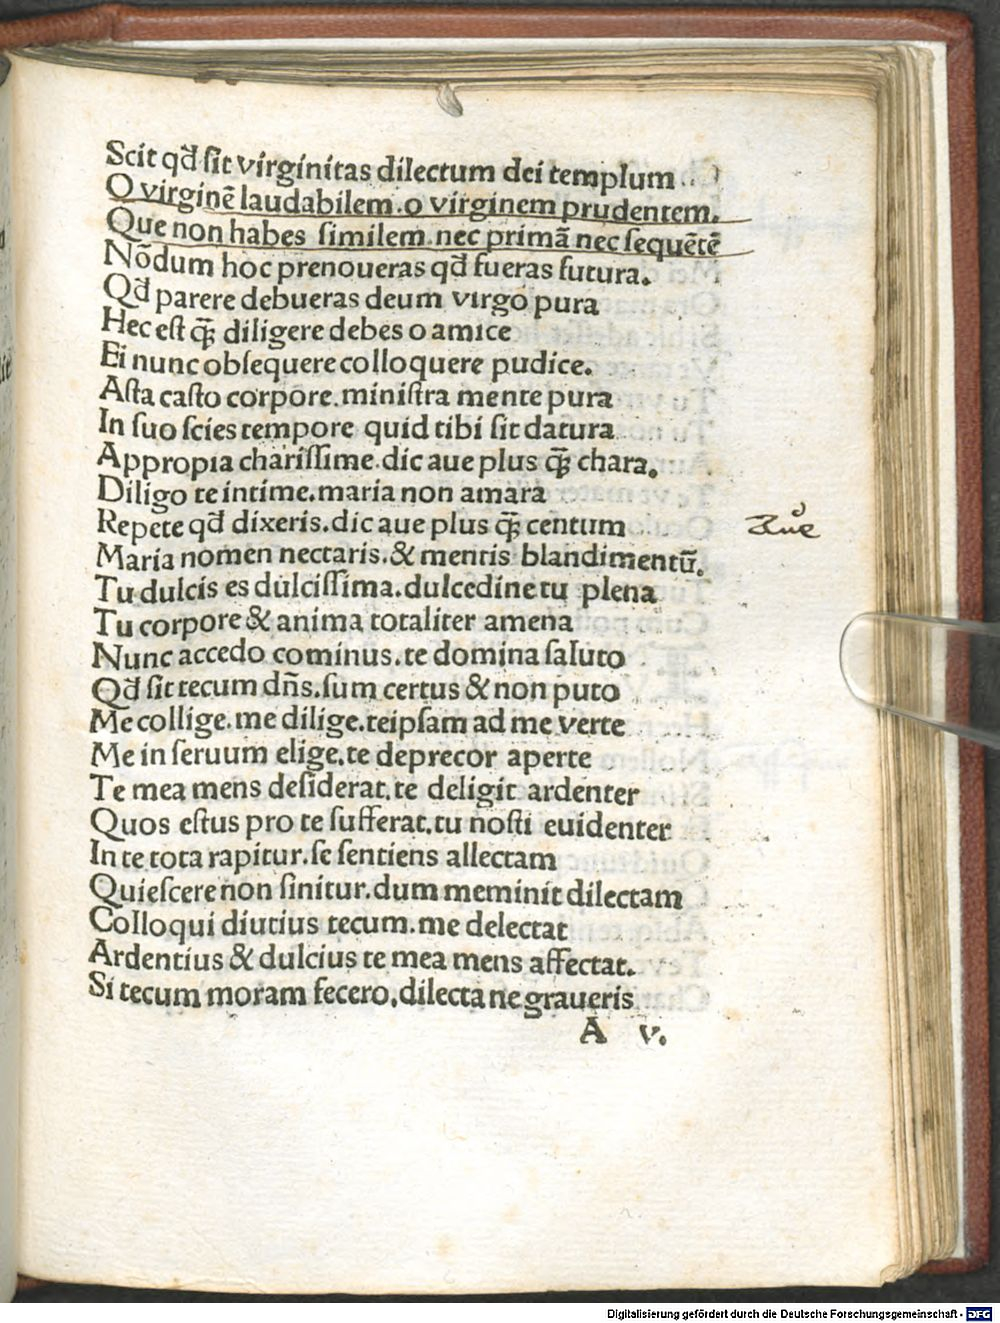 Scit qđ ſit virginitas dilectum dei templum
O virginē laudabilem.o virginem prudentem.
Que non habes ſimilem.nec primā nec ſequētē
Nōdum hoc prenoueras qđ fueras futura.
Qđ parere debueras deum virgo pura
Hec eſt q̄ꝫ diligere debes o amice
Ei nunc obſequere colloquere pudice.
Aſta caſto corpore.miniſtra mente pura
In ſuo ſcies tempore quid tibi ſit datura
Appropia chariſſime.dic aue plus q̄ꝫ chara.
Diligo te intime.maria non amara
Repete qđ dixeris.dic aue plus q̄ꝫ centum
Aue
Maria nomen nectaris.& mentis blandimentū.
Tu dulcis es dulciſſima.dulcedine tu plena
Tu corpore & anima totaliter amena
Nunc accedo cominus.te domina ſaluto
Qđ ſit tecum dn̄s.ſum certus & non puto
Me collige.me dilige.teipſam ad me verte
Me in ſeruum elige.te deprecor aperte
Te mea mens deſiderat.te deligit ardenter
Quos eſtus pro te ſufferat.tu noſti euidenter
In te tota rapitur.ſe ſentiens allectam
Quieſcere non ſinitur.dum meminit dilectam
Colloqui diutius tecum.me delectat
Ardentius & dulcius te mea mens affectat.
Si tecum moram fecero.dilecta ne graueris
A v.
Digitalisierung gefördert durch die Deutsche Forschungsgemeinschaft - DFG